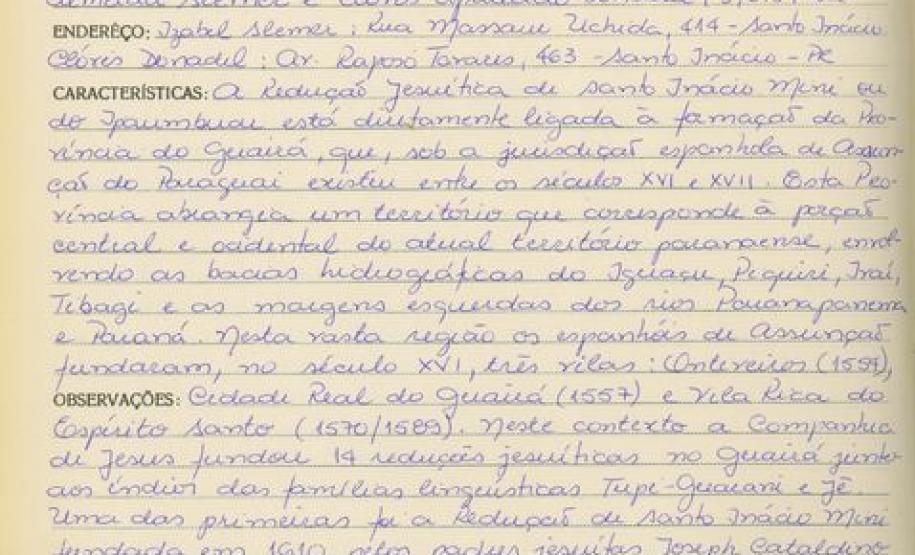 Almeida Slemer e Clóres
ENDERÊÇO: Izabel Slemer; Rua Massaru Uchida, 414 - Santo Inácio
Clóres Donadil; Av. Raposo Tavares, 463 - Santo Inácio - PR
CARACTERÍSTICAS: A Redução Jesuítica de Santo Inácio Mini ou
do Ipaumbucu está diretamente ligada à formação da Pro-
víncia do Guairá, que, sob a jurisdição espanhola de Assun-
ção do Paraguai existiu entre os séculos XVI e XVII. Esta Pro-
víncia abrangia um território que corresponde à porção
central e ocidental do atual território paranaense, envol-
vendo as bacias hidrográficas do Iguaçu, Piquiri, Ivaí,
Tibagi e as margens esquerdas dos rios Paranapanema
e Paraná. Nesta vasta região os espanhóis de Assunção
fundaram, no século XVI, três vilas: Ontiveiros (1554),
OBSERVAÇÕES: Cidade Real do Guairá (1557) e Vila Rica do
Espírito Santo (1570/1589). Neste contexto a Companhia
de Jesus fundou 14 reduções jesuíticas no Guairá junto
aos índios das famílias linguísticas Tupi-Guarani e Jê.
Uma das primeiras foi a Redução de Santo Inácio Mini
fundada em 1610 pelos padres jesuítas Joseph Cataldino